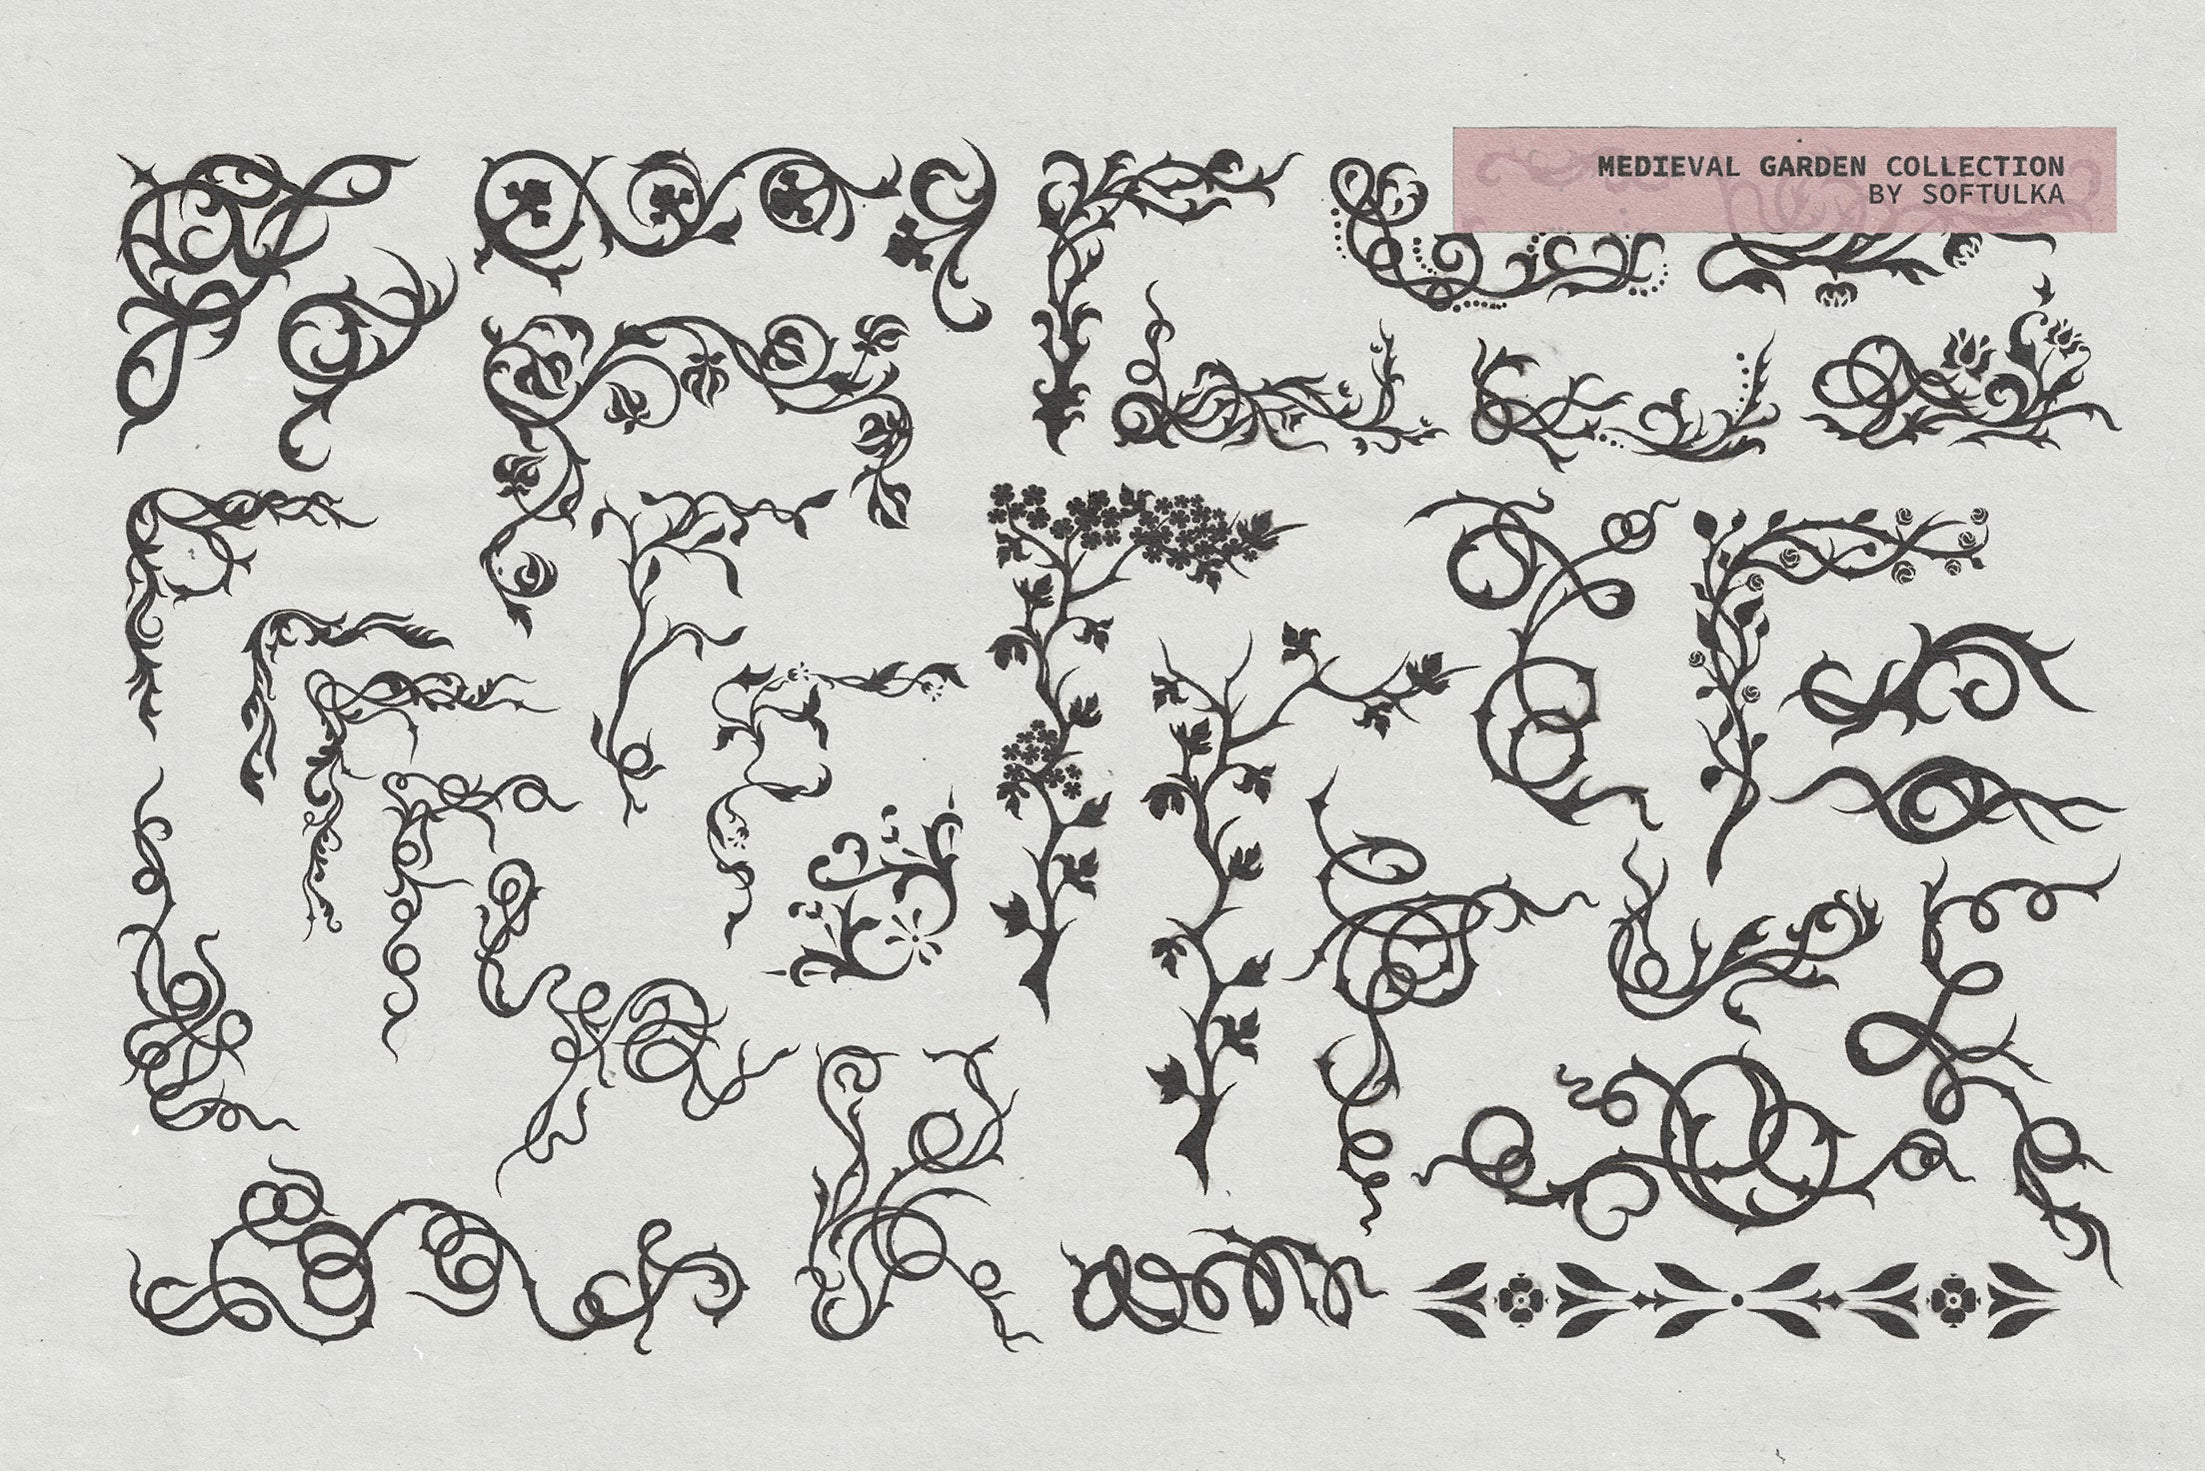 MEDIEVAL GARDEN COLLECTION
BY SOFTULKA